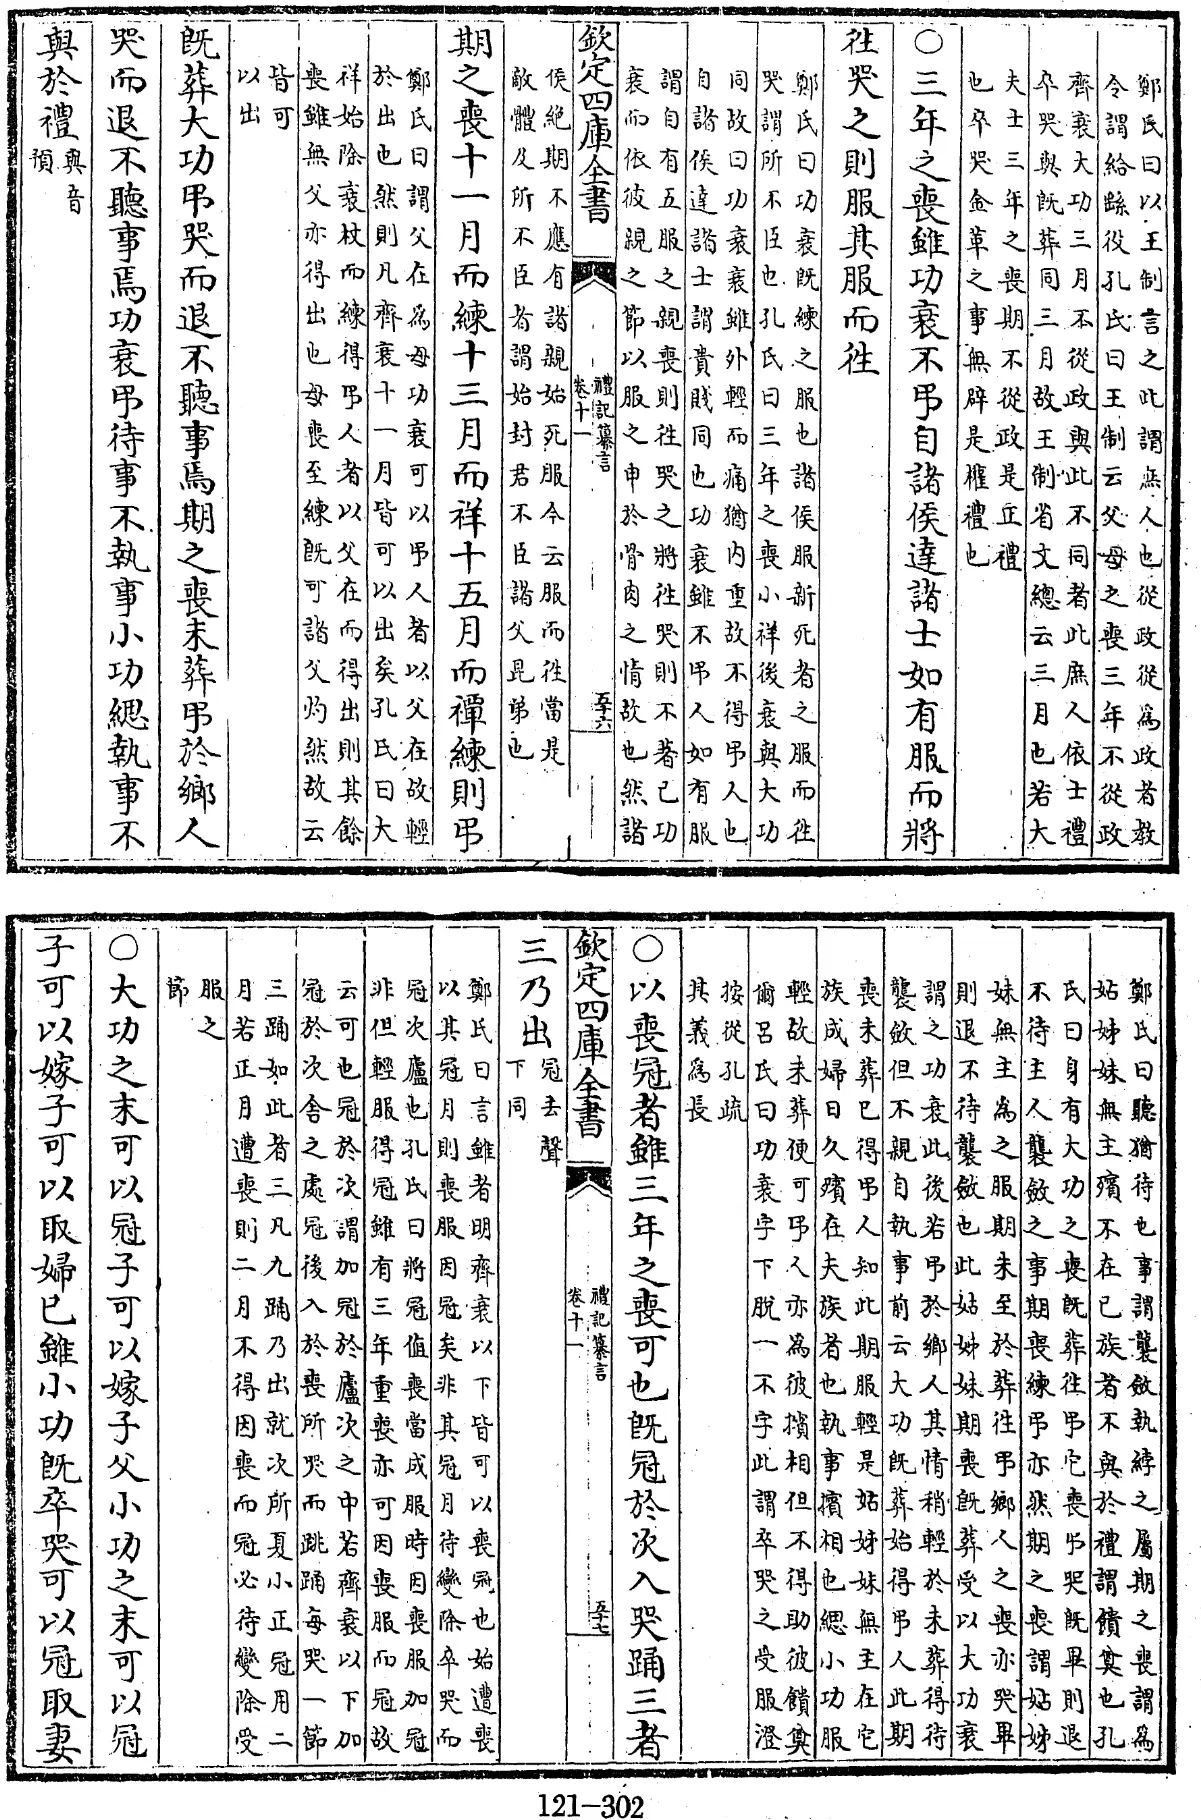 鄭氏曰以王制言之此謂庶人也從政從爲政者敎
令謂給繇役孔氏曰王制云父母之喪三年不從政
齊衰大功三月不從政與此不同者此庶人依士禮
卒哭與旣葬同三月故王制省文總云三月也若大
夫士三年之喪期不從政是正禮
也卒哭金革之事無辟是權禮也
○三年之喪雖功衰不弔自諸侯達諸士如有服而將
徃哭之則服其服而徃
鄭氏曰功衰旣練之服也諸侯服新死者之服而徃
哭謂所不臣也孔氏曰三年之喪小祥後衰與大功
同故曰功衰衰雖外輕而痛猶内重故不得弔人也
自諸侯達諸士謂貴賤同也功衰雖不弔人如有服
謂自有五服之親喪則徃哭之將徃哭則不著已功
衰而依彼親之節以服之申於骨肉之情故也然諸
欽定四庫全書
禮記纂言
卷十一
五十六
侯絶期不應有諸親始死服今云服而徃當是
敵體及所不臣者謂始封君不臣諸父昆弟也
期之喪十一月而練十三月而祥十五月而禫練則弔
鄭氏曰謂父在爲母功衰可以弔人者以父在故輕
於出也然則凡齊衰十一月皆可以出矣孔氏曰大
祥始除衰杖而練得弔人者以父在而得出則其餘
喪雖無父亦得出也母喪至練旣可諸父灼然故云
皆可
以出
旣葬大功弔哭而退不聽事焉期之喪未葬弔於鄉人
哭而退不聽事焉功衰弔待事不執事小功緦執事不
與於禮與音預
鄭氏曰聽猶待也事謂襲斂執綍之屬期之喪謂爲
姑姊妹無主殯不在已族者不與於禮謂饋奠也孔
氏曰身有大功之喪旣葬徃弔它喪弔哭旣畢則退
不待主人襲斂之事期喪練弔亦然期之喪謂姑姊
妹無主爲之服期未至於葬徃弔鄉人之喪亦哭畢
則退不待襲斂也此姑姊妹期喪旣葬受以大功衰
謂之功衰此後若弔於鄉人其情稍輕於未葬得待
襲斂但不親自執事前云大功旣葬始得弔人此期
喪未葬已得弔人知此期服輕是姑姊妹無主在它
族成婦日久殯在夫族者也執事擯相也緦小功服
輕故未葬便可弔人亦爲彼擯相但不得助彼饋奠
爾呂氏曰功衰字下脱一不字此謂卒哭之受服澄
按從孔疏
其義爲長
○以喪冠者雖三年之喪可也旣冠於次入哭踊三者
欽定四庫全書
禮記纂言
卷十一
五十七
三乃出冠去聲下同
鄭氏曰言雖者明齊衰以下皆可以喪冠也始遭喪
以其冠月則喪服因冠矣非其冠月待變除卒哭而
冠次廬也孔氏曰將冠値喪當成服時因喪服加冠
非但輕服得冠雖有三年重喪亦可因喪服而冠故
云可也冠於次謂加冠於廬次之中若齊衰以下加
冠於次舍之處冠後入於喪所哭而跳踊每哭一節
三踊如此者三凡九踊乃出就次所夏小正冠用二
月若正月遭喪則二月不得因喪而冠必待變除受
服之
節
○大功之末可以冠子可以嫁子父小功之末可以冠
子可以嫁子可以取婦已雖小功旣卒哭可以冠取妻
121-302